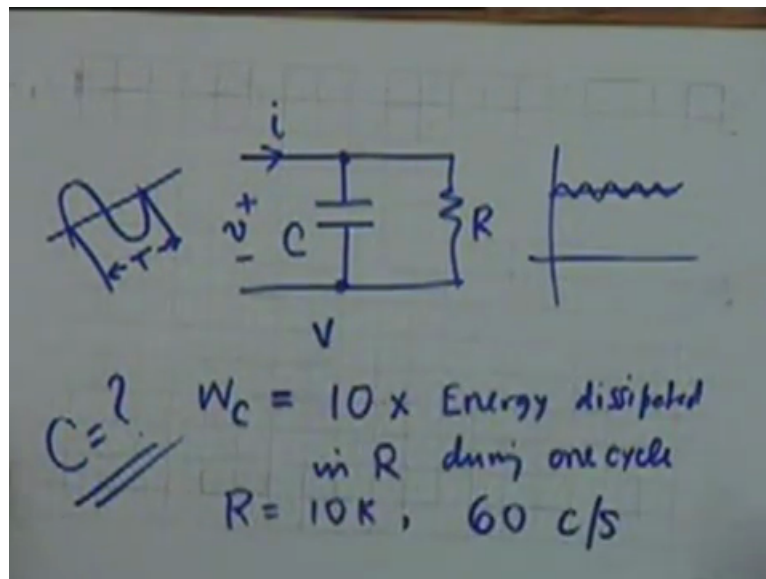 i
T
v
+
-
C
R
V
C=?
W_C = 10 x Energy dissipated
in R during one cycle
R = 10K, 60 c/s